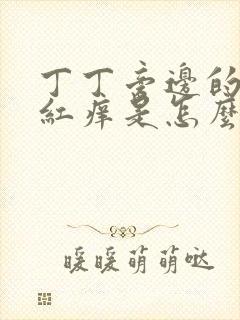 丁丁旁邊的
紅痒是怎麼
暖暖萌萌哒